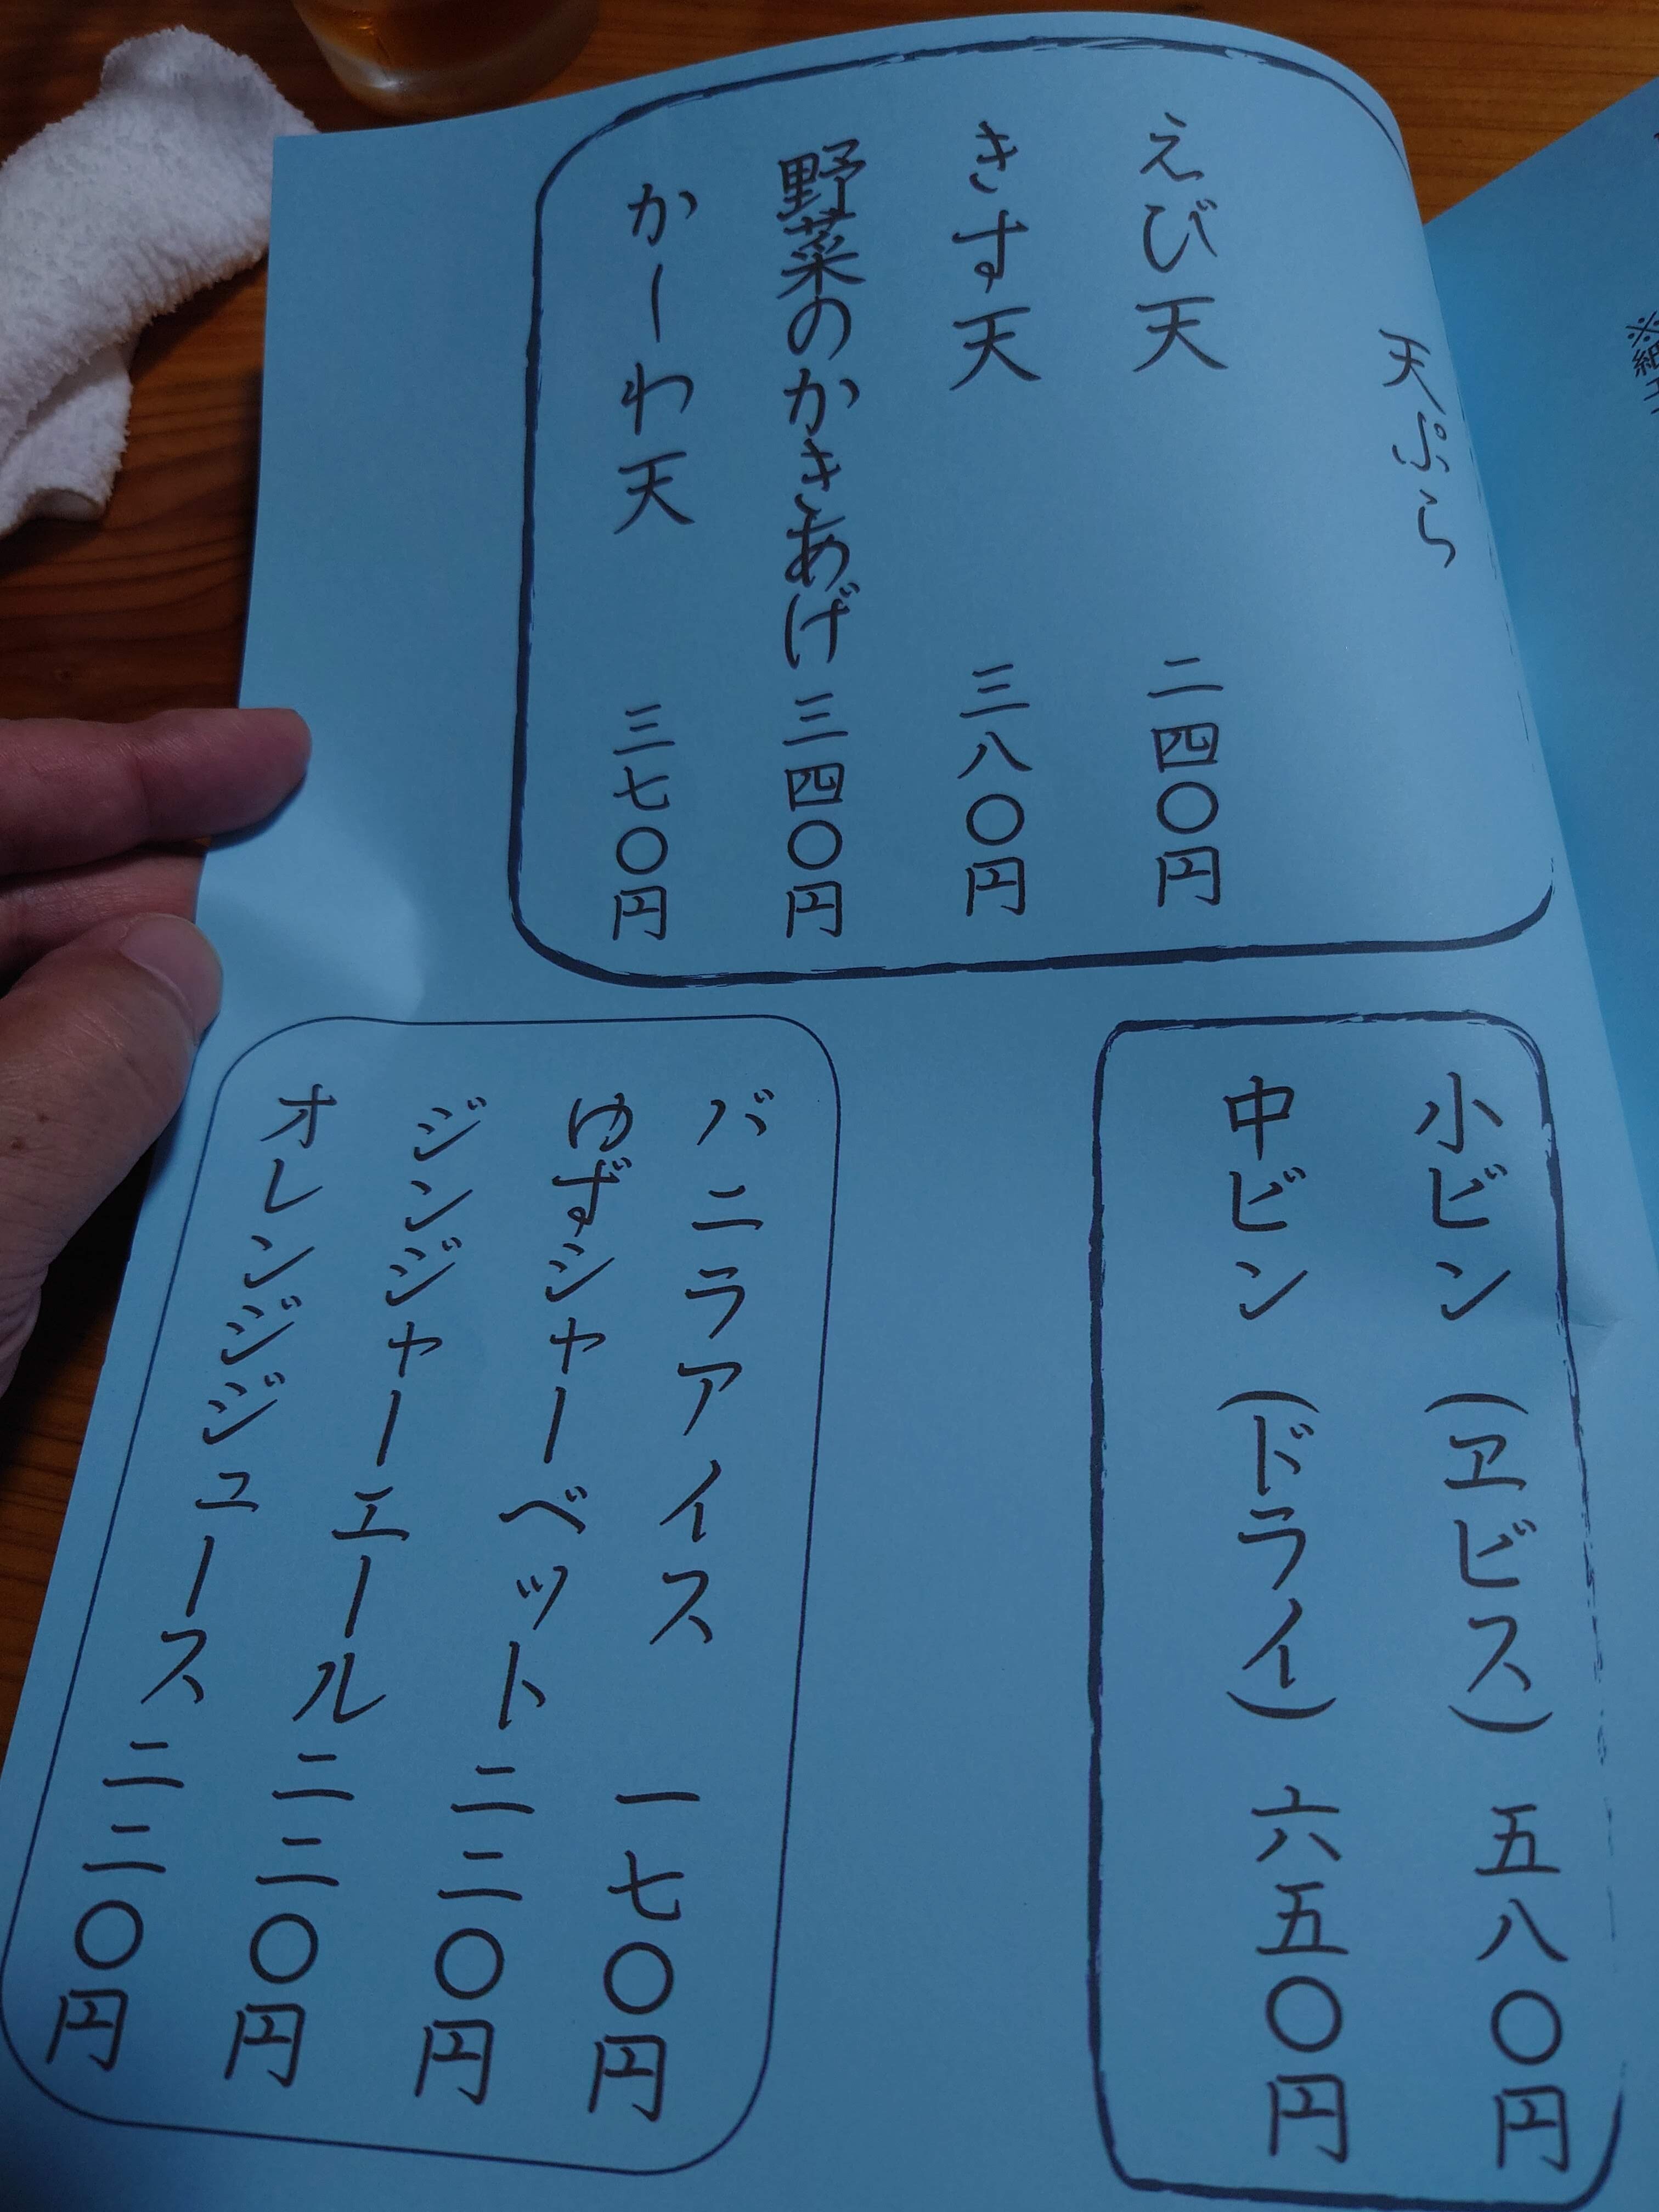 天ぷら
えび天 二四〇円
きす天 三八〇円
野菜のかきあげ 三四〇円
かーわ天 三七〇円
小ビン(ヱビス) 五八〇円
中ビン(ドライ) 六五〇円
バニラアイス 一七〇円
ゆずシャーベット 二二〇円
ジンジャーエール 二二〇円
オレンジジュース 二二〇円